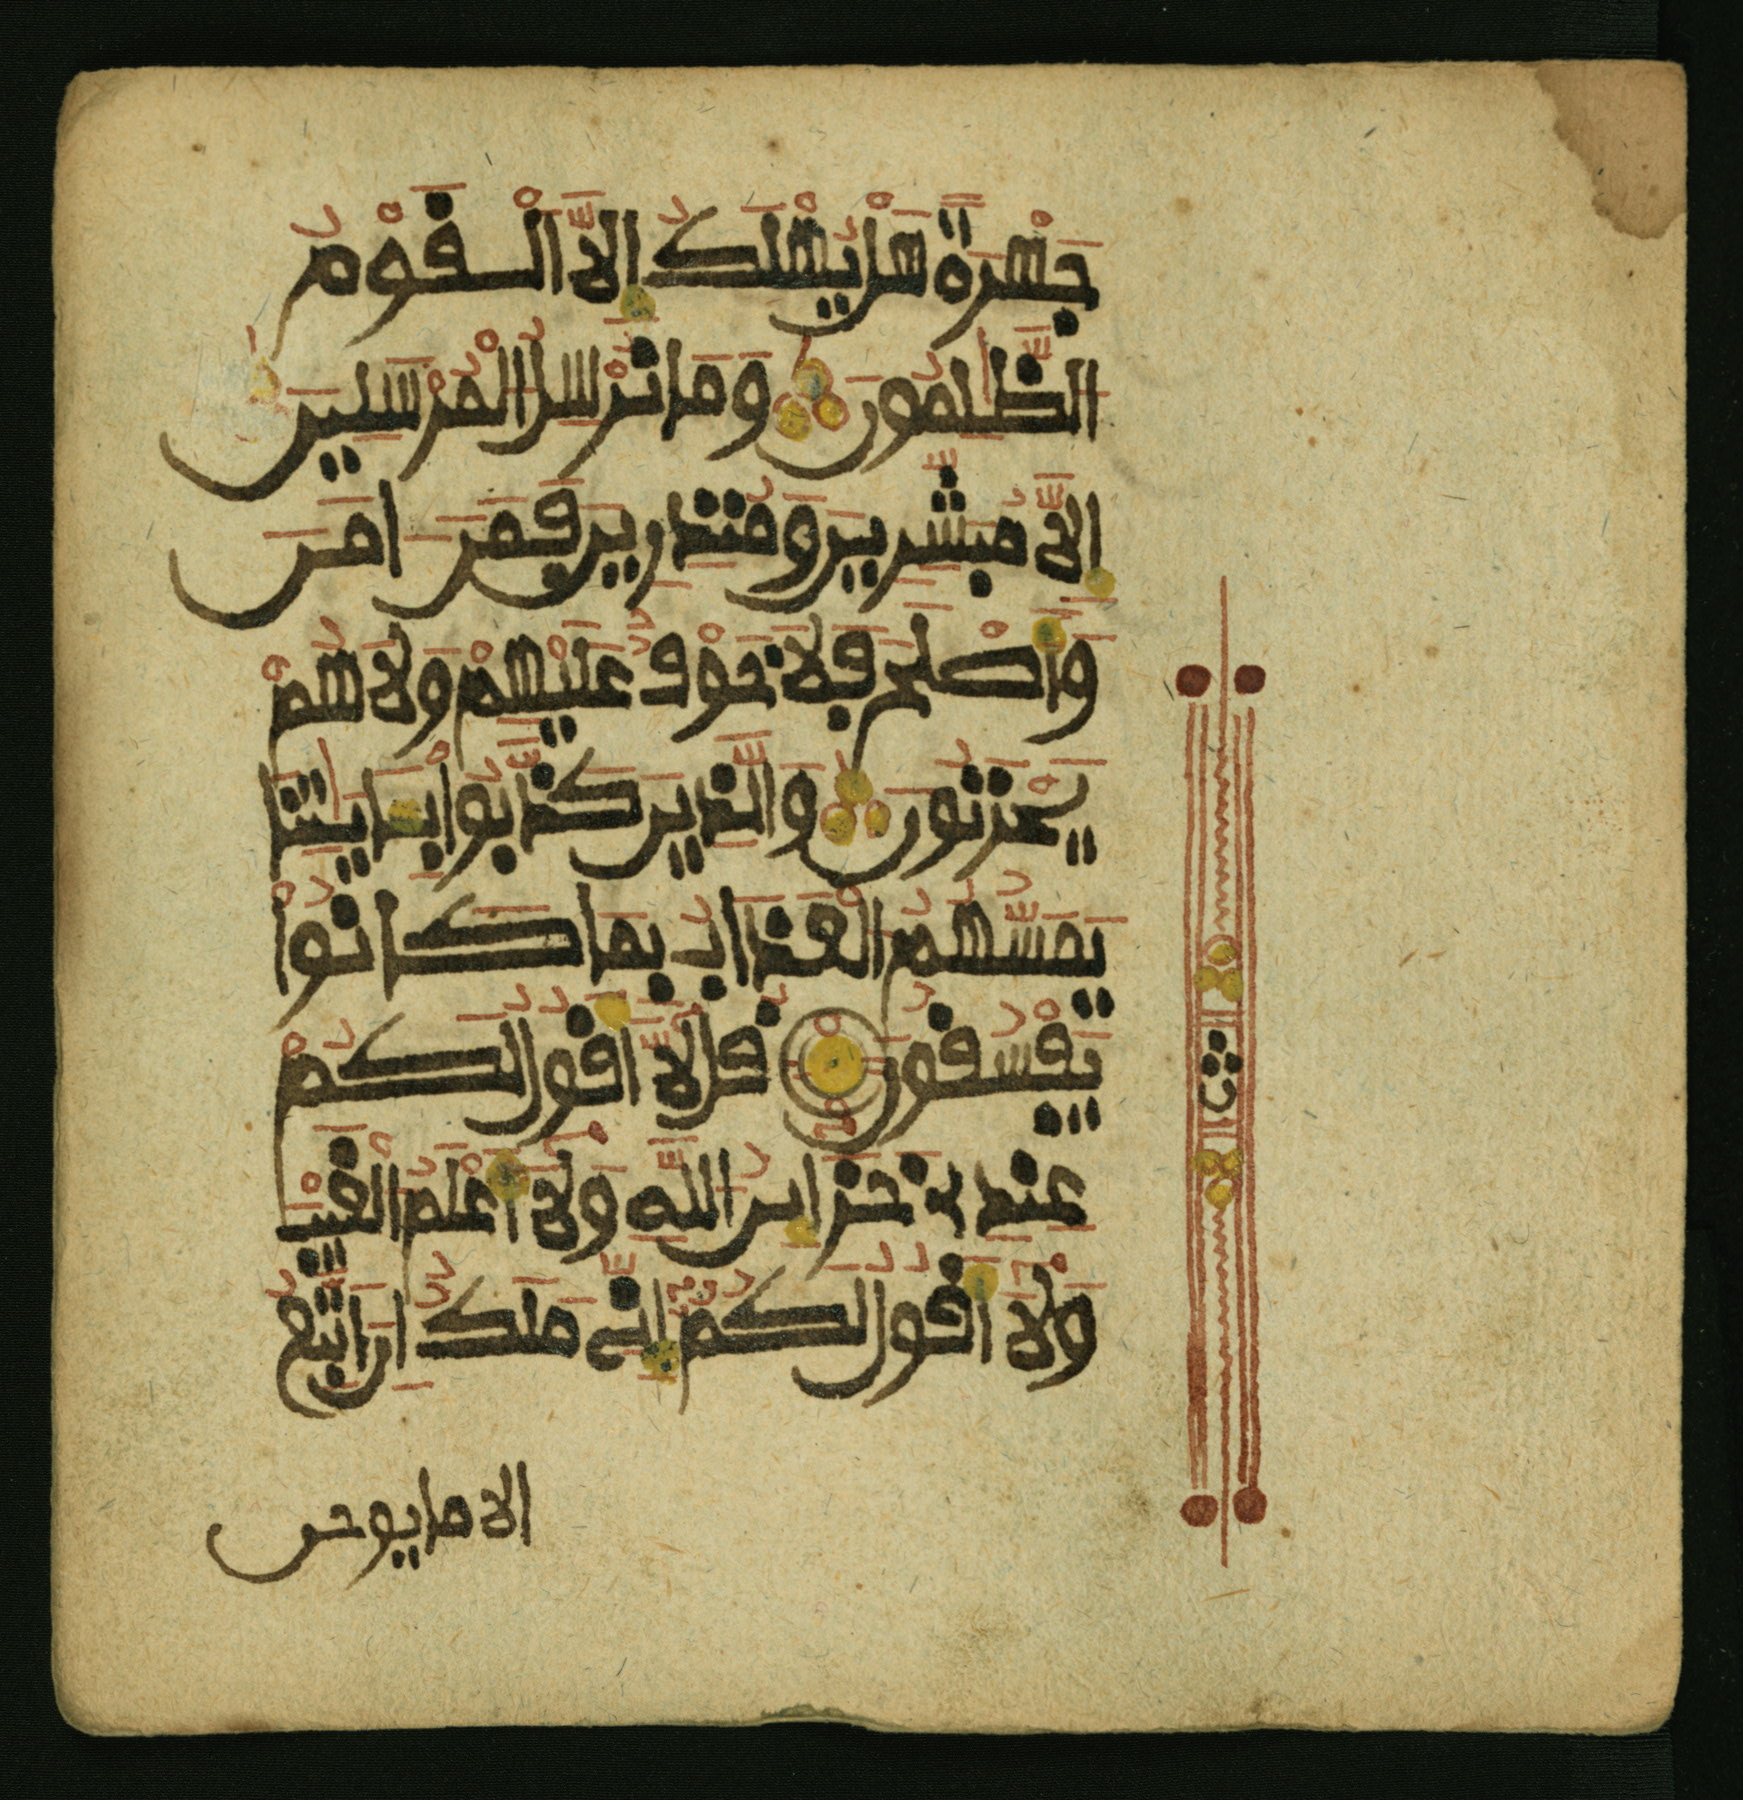 جَهْرَةً هَلْ يُهْلَكُ إِلَّا اَلْقَوْمُ
اَلظَّٰلِمُونَ وَمَا نُرْسِلُ اُلْمُرْسَلِينَ
إِلَّا مُبَشِّرِينَ وَمُنذِرِينَ فَمَنَ اٰمَنَ
وَأَصْلَحَ فَلَا خَوْفٌ عَلَيْهِمْ وَلَا هُمْ
يَحْزَنُونَ وَالَّذِينَ كَذَّبُوا بِـَٔايَٰتِنَا
يَمَسُّهُمُ اُلْعَذَابُ بِمَا كَانُوا
يَفْسُقُونَ قُل لَّا أَقُولُ لَكُمْ
عِندِي خَزَائِنُ اُللَّهِ وَلَا أَعْلَمُ اُلْغَيْبَ
وَلَا أَقُولُ لَكُمْ إِنِّي مَلَكٌ إِنَ اَتَّبِعُ
الا ما يوحى